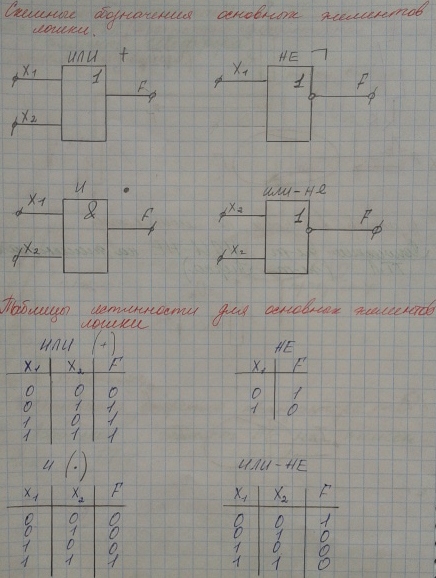 Схемные обозначения основных элементов
логики.
ИЛИ +
НЕ ¬
X1 1 F
X2
X1 1 F
И •
ИЛИ-НЕ
X1 & F
X2
X2 1 F
X2
Таблицы истинности для основных элементов
логики
ИЛИ (+)
X1 X2 F
0 0 0
0 1 1
1 0 1
1 1 1
НЕ
X1 F
0 1
1 0
И (•)
X1 X2 F
0 0 0
0 1 0
1 0 0
1 1 1
ИЛИ-НЕ
X1 X2 F
0 0 1
0 1 0
1 0 0
1 1 0